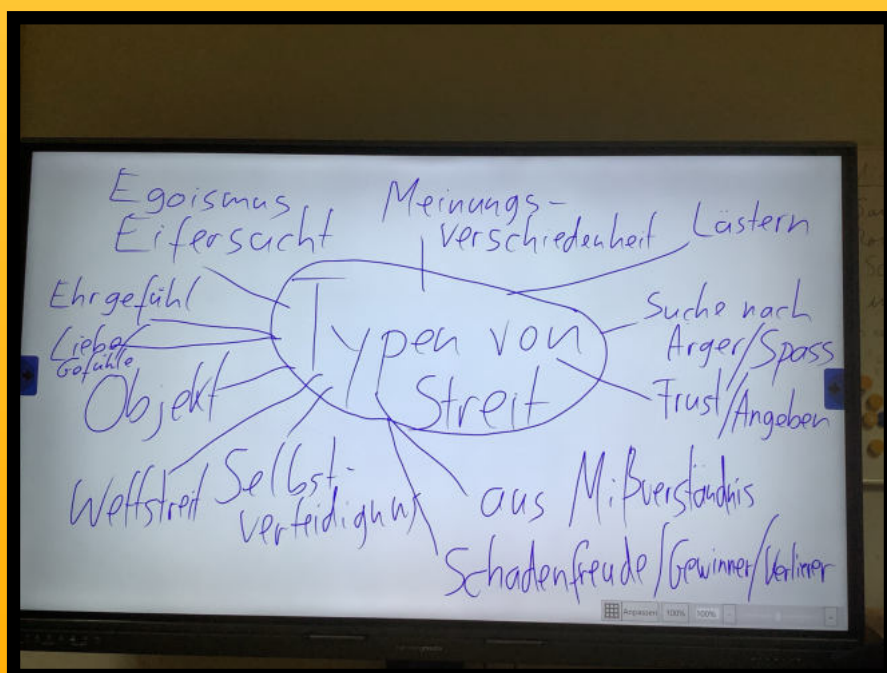 Egoismus
Eifersucht
Meinungs-
verschiedenheit
Lästern
Ehrgefühl
Liebe
Gefühle
Objekt
Typen von
Streit
Suche nach
Ärger/Spass
Frust/Angeben
Wettstreit
Selbst-
verteidigung
aus Mißverständnis
Schadenfreude/Gewinner/Verlierer
Anpassen 100% 100%